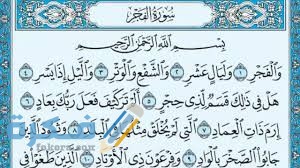 سُورَةُ الفَجْرِ
بِسْمِ اللَّهِ الرَّحْمَٰنِ الرَّحِيمِ
وَالْفَجْرِ ١ وَلَيَالٍ عَشْرٍ ٢ وَالشَّفْعِ وَالْوَتْرِ ٣ وَاللَّيْلِ إِذَا يَسْرِ ٤
هَلْ فِي ذَٰلِكَ قَسَمٌ لِّذِي حِجْرٍ ٥ أَلَمْ تَرَ كَيْفَ فَعَلَ رَبُّكَ بِعَادٍ ٦
إِرَمَ ذَاتِ الْعِمَادِ ٧ الَّتِي لَمْ يُخْلَقْ مِثْلُهَا فِي الْبِلَادِ ٨ وَثَمُودَ الَّذِينَ
جَابُوا الصَّخْرَ بِالْوَادِ ٩ وَفِرْعَوْنَ ذِي الْأَوْتَادِ ١٠ الَّذِينَ طَغَوْا فِي
فكرة
fekera.com